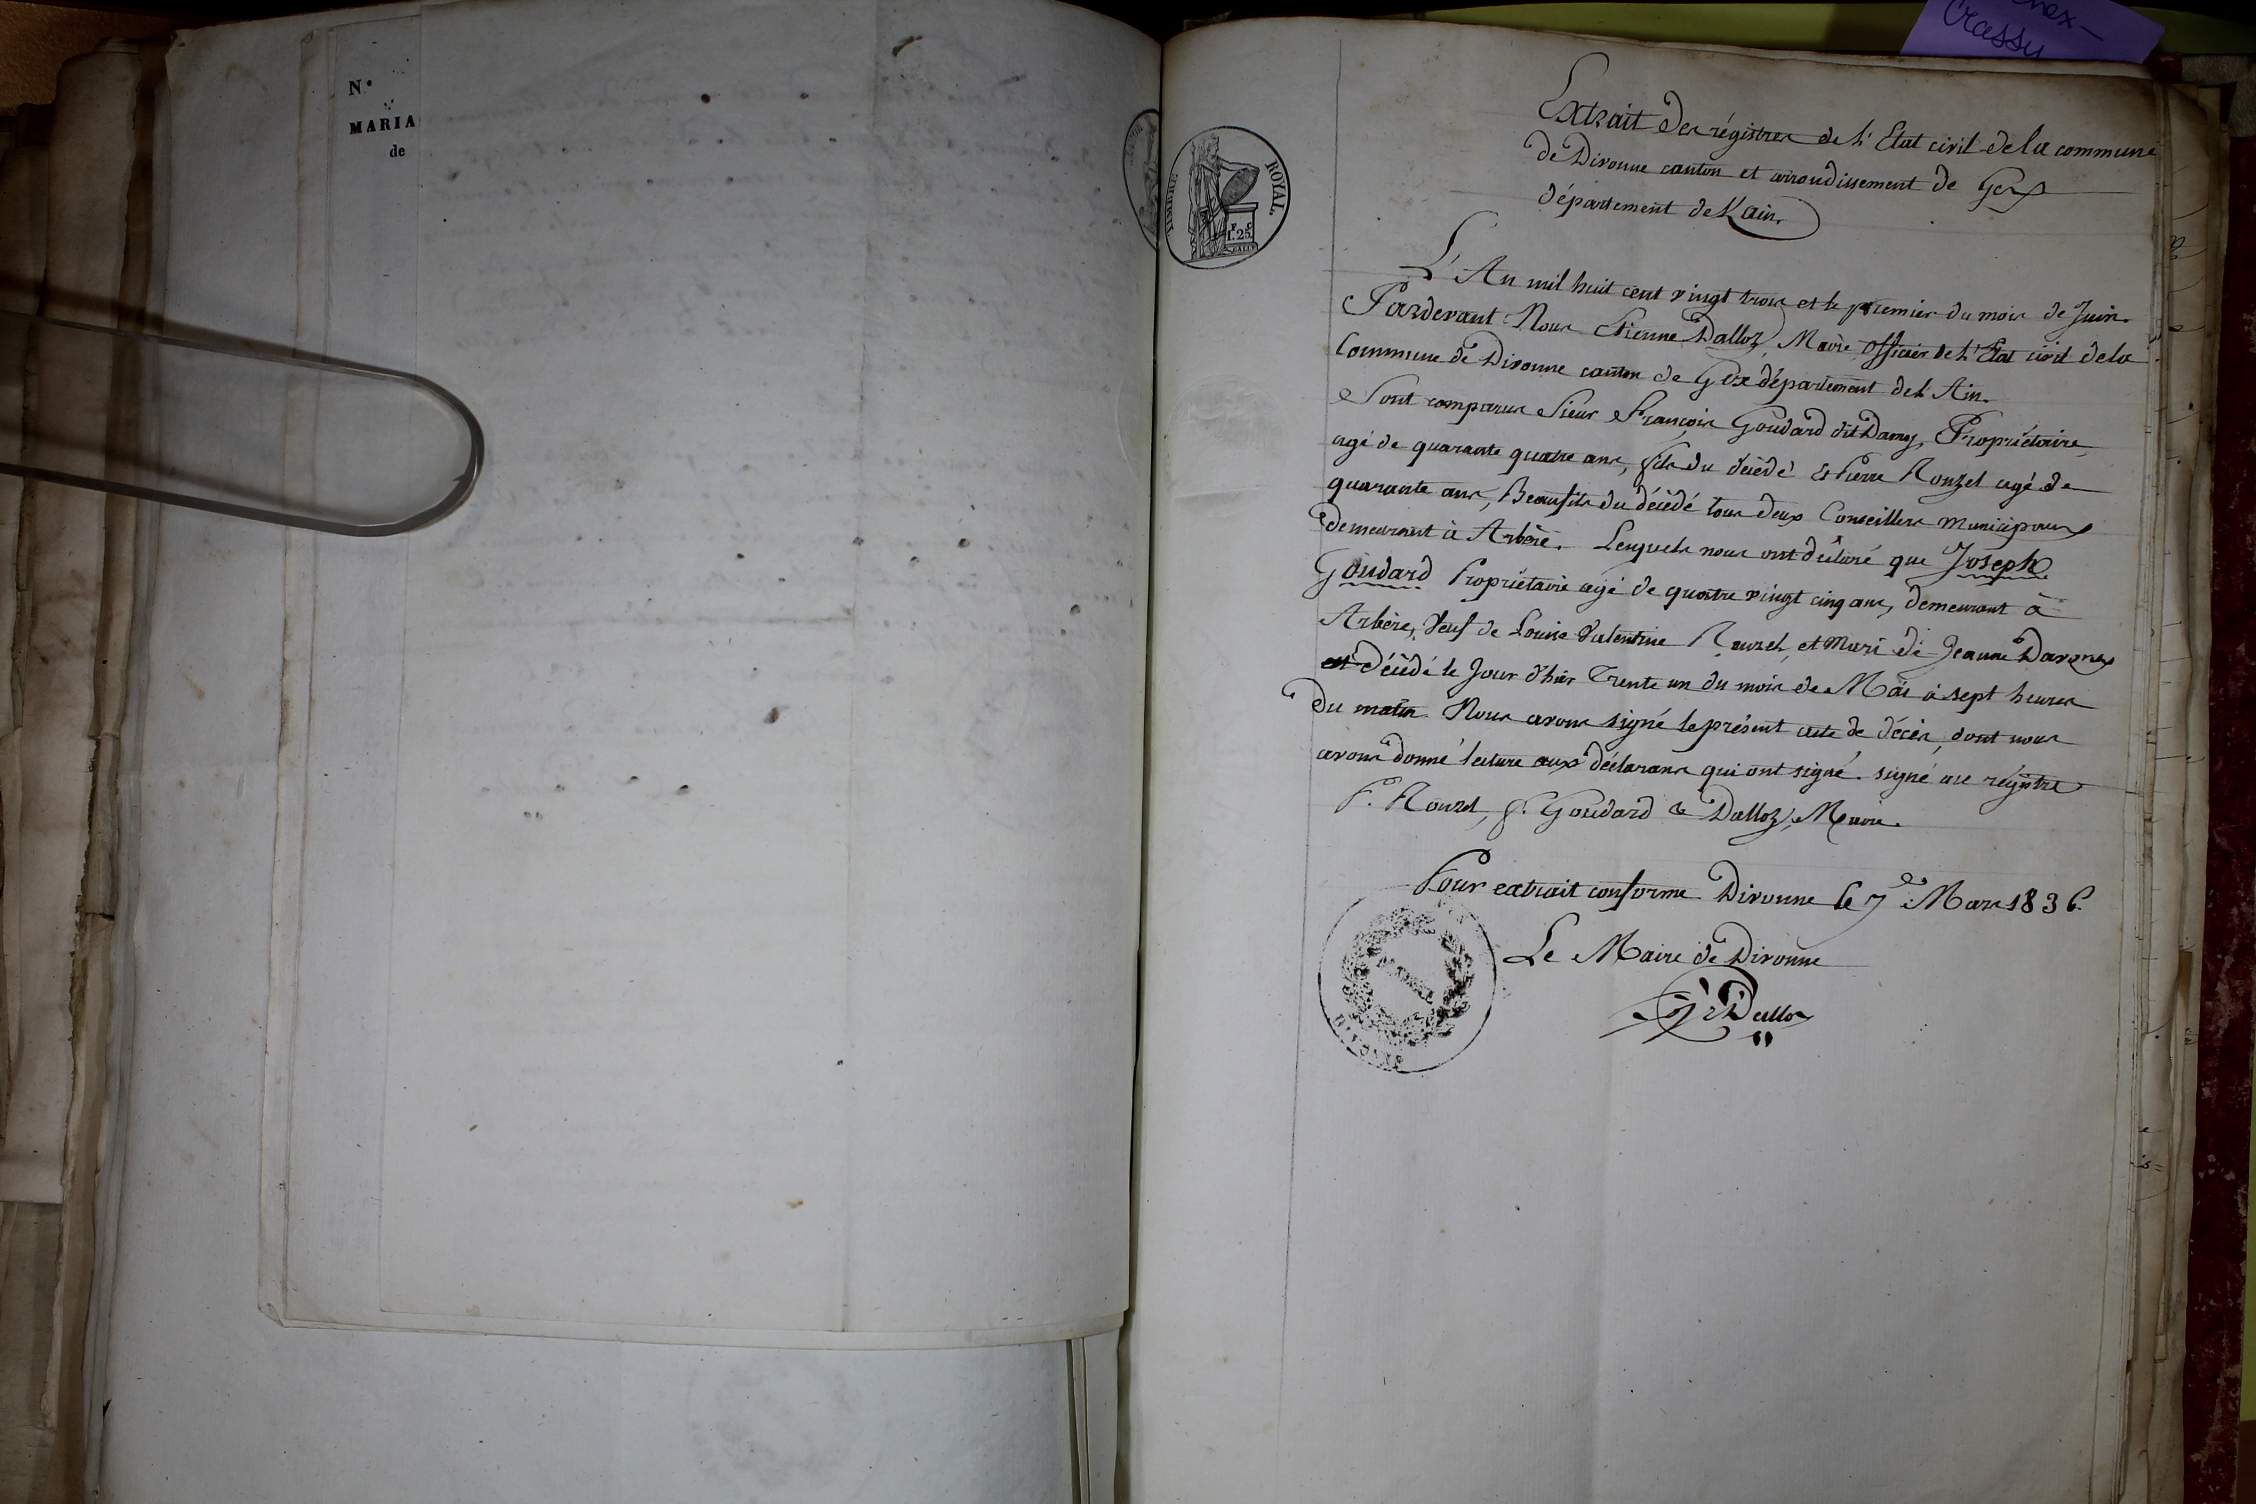 nex-
Crassy
N.°
MARIA
de
TIMBRE ROYAL
F. C.
1.25
Extrait des régistres de l'Etat civil de la commune
de Divonne canton et arrondissement de Gex
département de L'ain.
L'An mil huit cent vingt trois et le premier du mois de Juin.
Pardevant Nous Etienne Dalloz, Maire officier de l'Etat civil de la
Commune de Divonne canton de Gex département de l'Ain.
Sont comparus Sieur François Goudard dit Damy, Propriétaire,
agé de quarante quatre ans, fils du décédé & Pierre Rouzet agé de
quarante ans, Beaufils du décédé tous deux Conseillers municipaux
demeurant à Arbère. Lesquels nous ont déclaré que Joseph
Goudard Propriétaire agé de quatre vingt cinq ans, demeurant à
Arbère, Veuf de Louise Valentine Rouzet, et Mari de Jeanne
est décédé le Jour d'hier Trente un du mois de Mai à sept heures
du matin Nous avons signé le présent acte de décès, dont nous
avons donné lecture aux déclarans qui ont signé. signé au régistre
P. Rouzet, f. Goudard & Dalloz, Maire.
Pour extrait conforme Divonne le 7 Mars 1836.
Le Maire de Divonne
Dalloz
DIVONNE